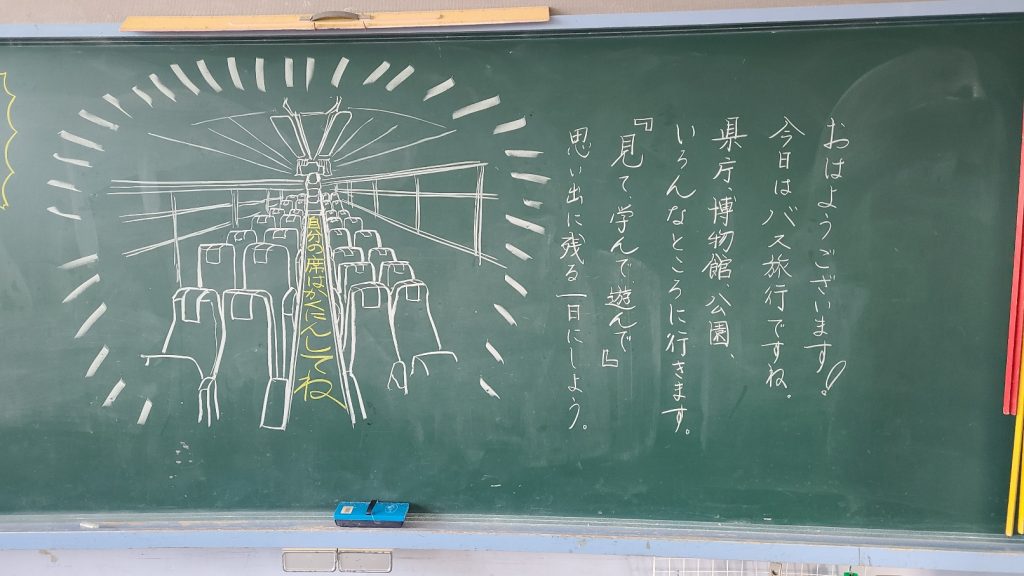 おはようございます！
今日はバス旅行ですね。
県庁、博物館、公園、
いろんなところに行きます。
『見て、学んで、遊んで』
思い出に残る一日にしよう。
自分の席はかくにんしてね